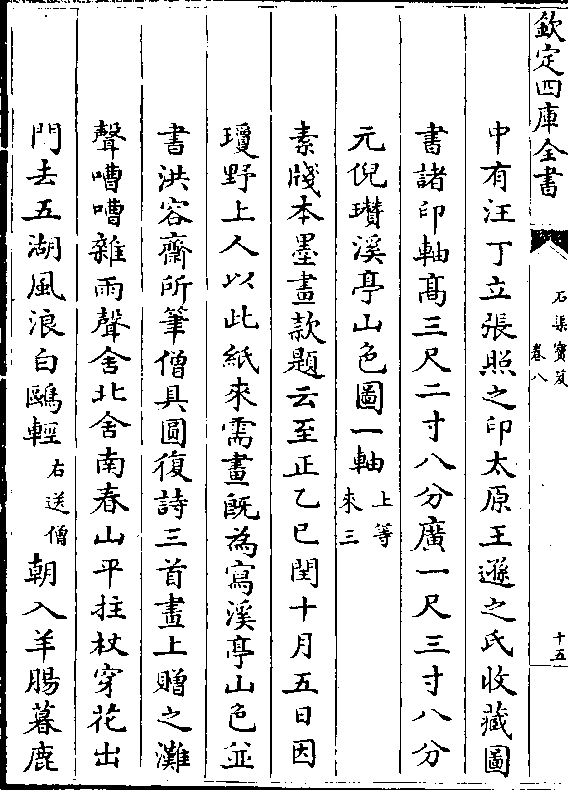 欽定四庫全書
石渠寶笈
卷八
十五
中有汪丁立張照之印太原王遜之氏收藏圖
書諸印軸髙三尺二寸八分廣一尺三寸八分
元倪瓚溪亭山色圖一軸上等來三
素牋本墨畫款題云至正乙巳閏十月五日因
瓊野上人以此紙來需畫既為寫溪亭山色並
書洪容齋所筆僧具圓復詩三首畫上贈之灘
聲嘈嘈雜雨聲舍北舍南春山平拄杖穿花出
門去五湖風浪白鷗輕右送僧朝入羊腸暮鹿